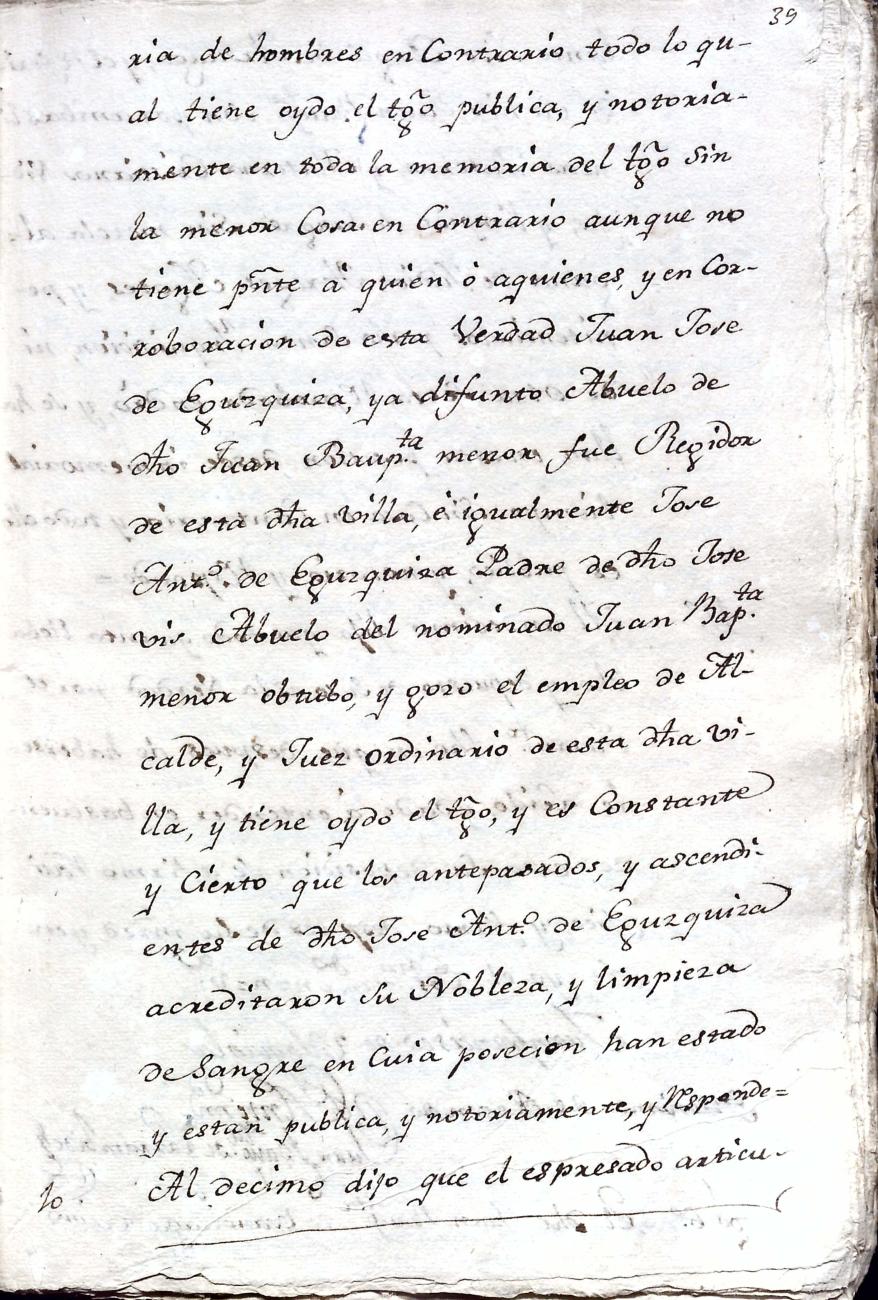 39
ria de hombres en Contrario todo lo qu-
al tiene oydo el tg̃o publica, y notoria-
mente en toda la memoria del tg̃o Sin
la menor Cosa en Contrario aunque no
tiene pñte á quien ó aquienes, y en Cor-
roboracion de esta Verdad Juan Jose
de Eguzquiza, ya difunto Abuelo de
dho Juan Baup.ta menor fue Regidor
de esta dha villa, é igualmente Jose
Ant.o de Eguzquiza Padre de dho Jose
vis Abuelo del nominado Juan Bap.ta
menor obtubo, y gozo el empleo de Al-
calde, y Juez ordinario de esta dha vi-
lla, y tiene oydo el tg̃o, y es Constante
y Cierto que los antepasados, y ascendi-
entes de dho Jose Ant.o de Eguzquiza
acreditaron su Nobleza, y limpieza
de Sangre en Cuia posecion han estado
y estan publica, y notoriamente, y Responde=
Al decimo dijo que el espresado articu-
lo